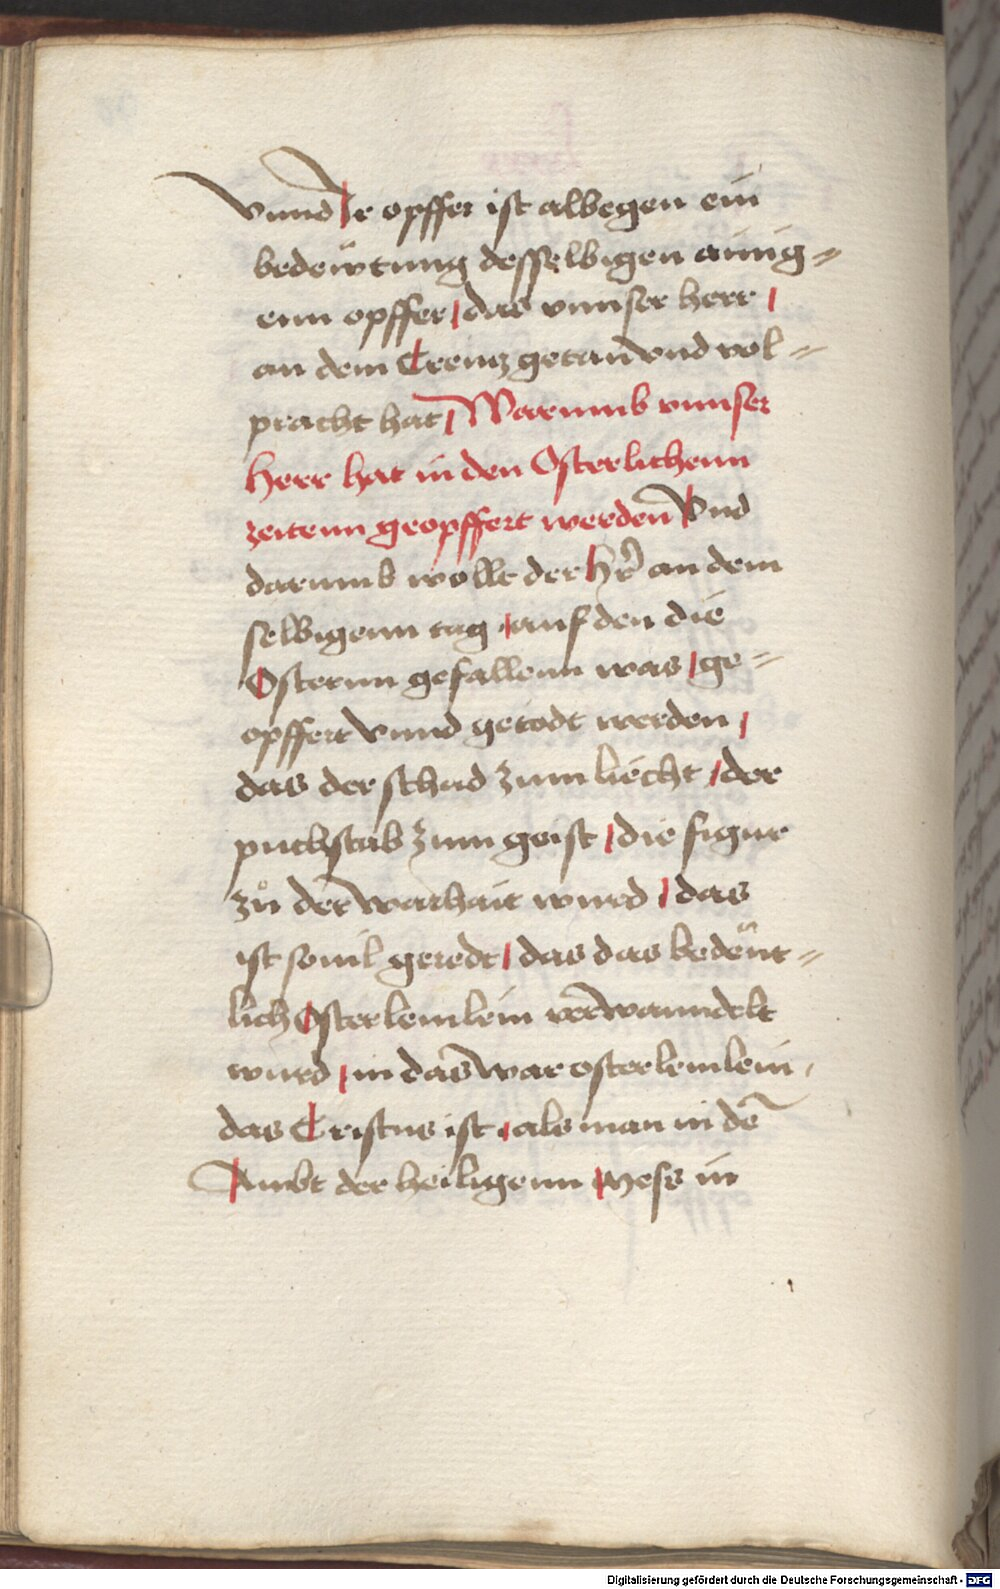 Vnnd Ir opffer ist albegen ein
bedeẅtung desselbigen ainig=
enn opffer / das vnnser herr /
an dem Creutz getan vnd vol=
pracht hat / Warumb vnnser
herr hat in den Osterlichenn
zeitenn geopffert werden Vnd
darumb wolle der Hr̄ an dem
selbigenn tag / auf den die
Osternn gefallenn was / ge=
opffert vnnd getodt werden /
das der schad zum liecht / der
puchstab zum geist / die figur
zů der warhait wurd / das
ist souil geredt / das das bedeüt=
lich Osterlemlein verwanndelt
wurd / in das war osterlemlein /
das Cristus ist / als man in dē
Ambt der heiligenn Mess in
Digitalisierung gefördert durch die Deutsche Forschungsgemeinschaft - DFG